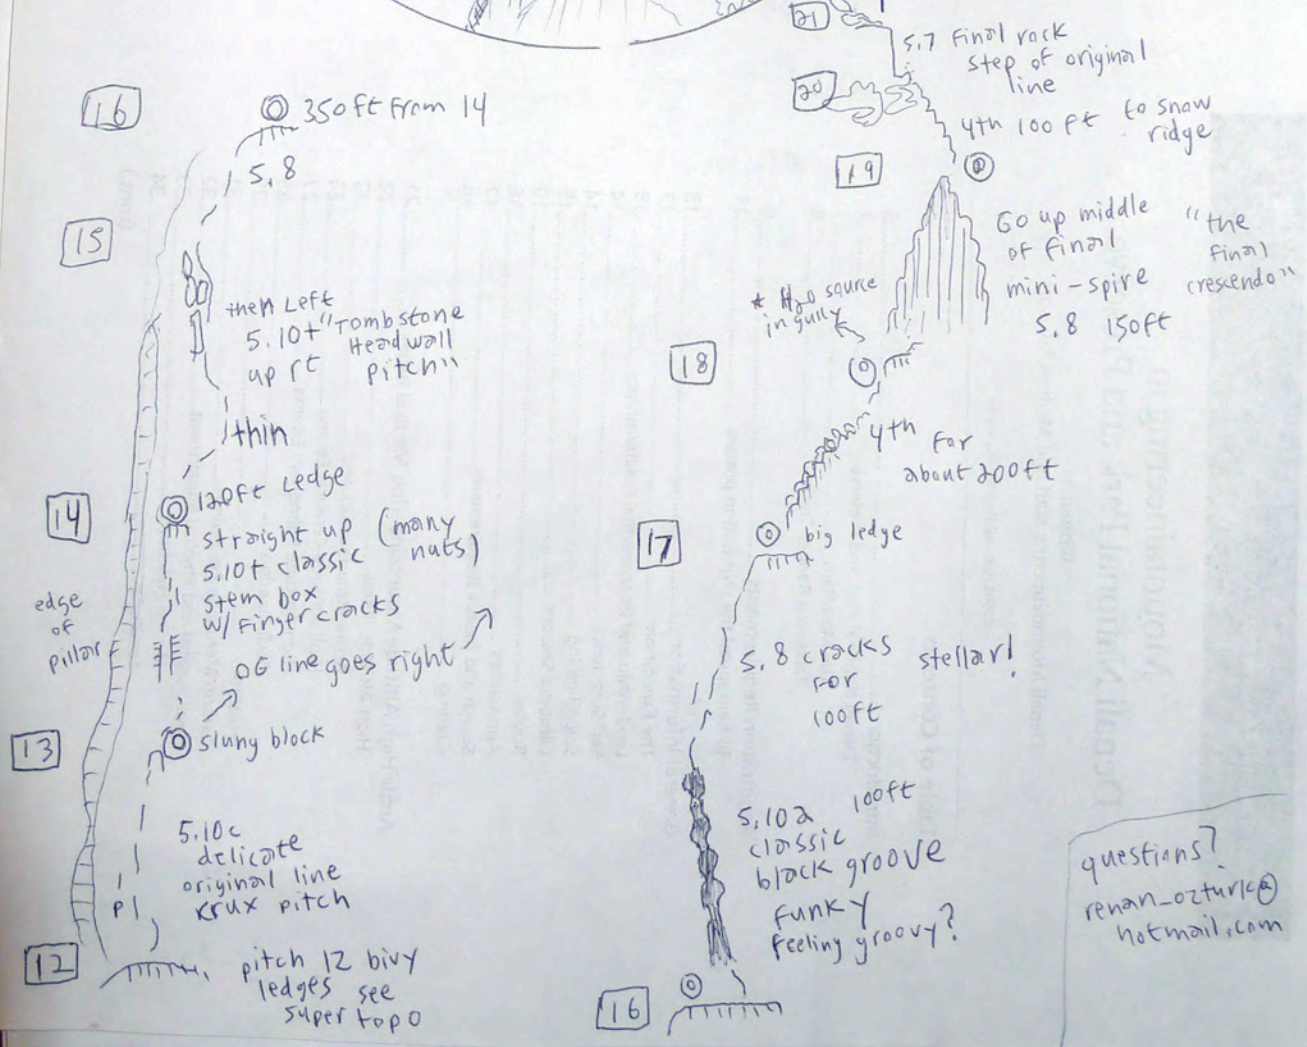 16
350ft from 14
5.8
15
then Left
5.10+ "Tombstone
Headwall
up rt pitch"
thin
14
120ft Ledge
straight up (many
nuts)
5.10+ classic
stem box
w/ Finger cracks
edge
of
pillar
OG line goes right
13
slung block
5.10c
delicate
original line
krux pitch
P
12
pitch 12 bivy
ledges see
super topo
21
5.7 Final rock
step of original
line
20
4th 100 ft to snow
ridge
19
Go up middle
of final
mini-spire
"the
final
crescendo"
5.8 150ft
* H2O source
in gully
18
4th for
about 200ft
17
big ledge
5.8 cracks
for
100ft
stellar!
5.10a 100ft
classic
black groove
funky
feeling groovy?
16
questions?
renan_ozturk@
hotmail.com